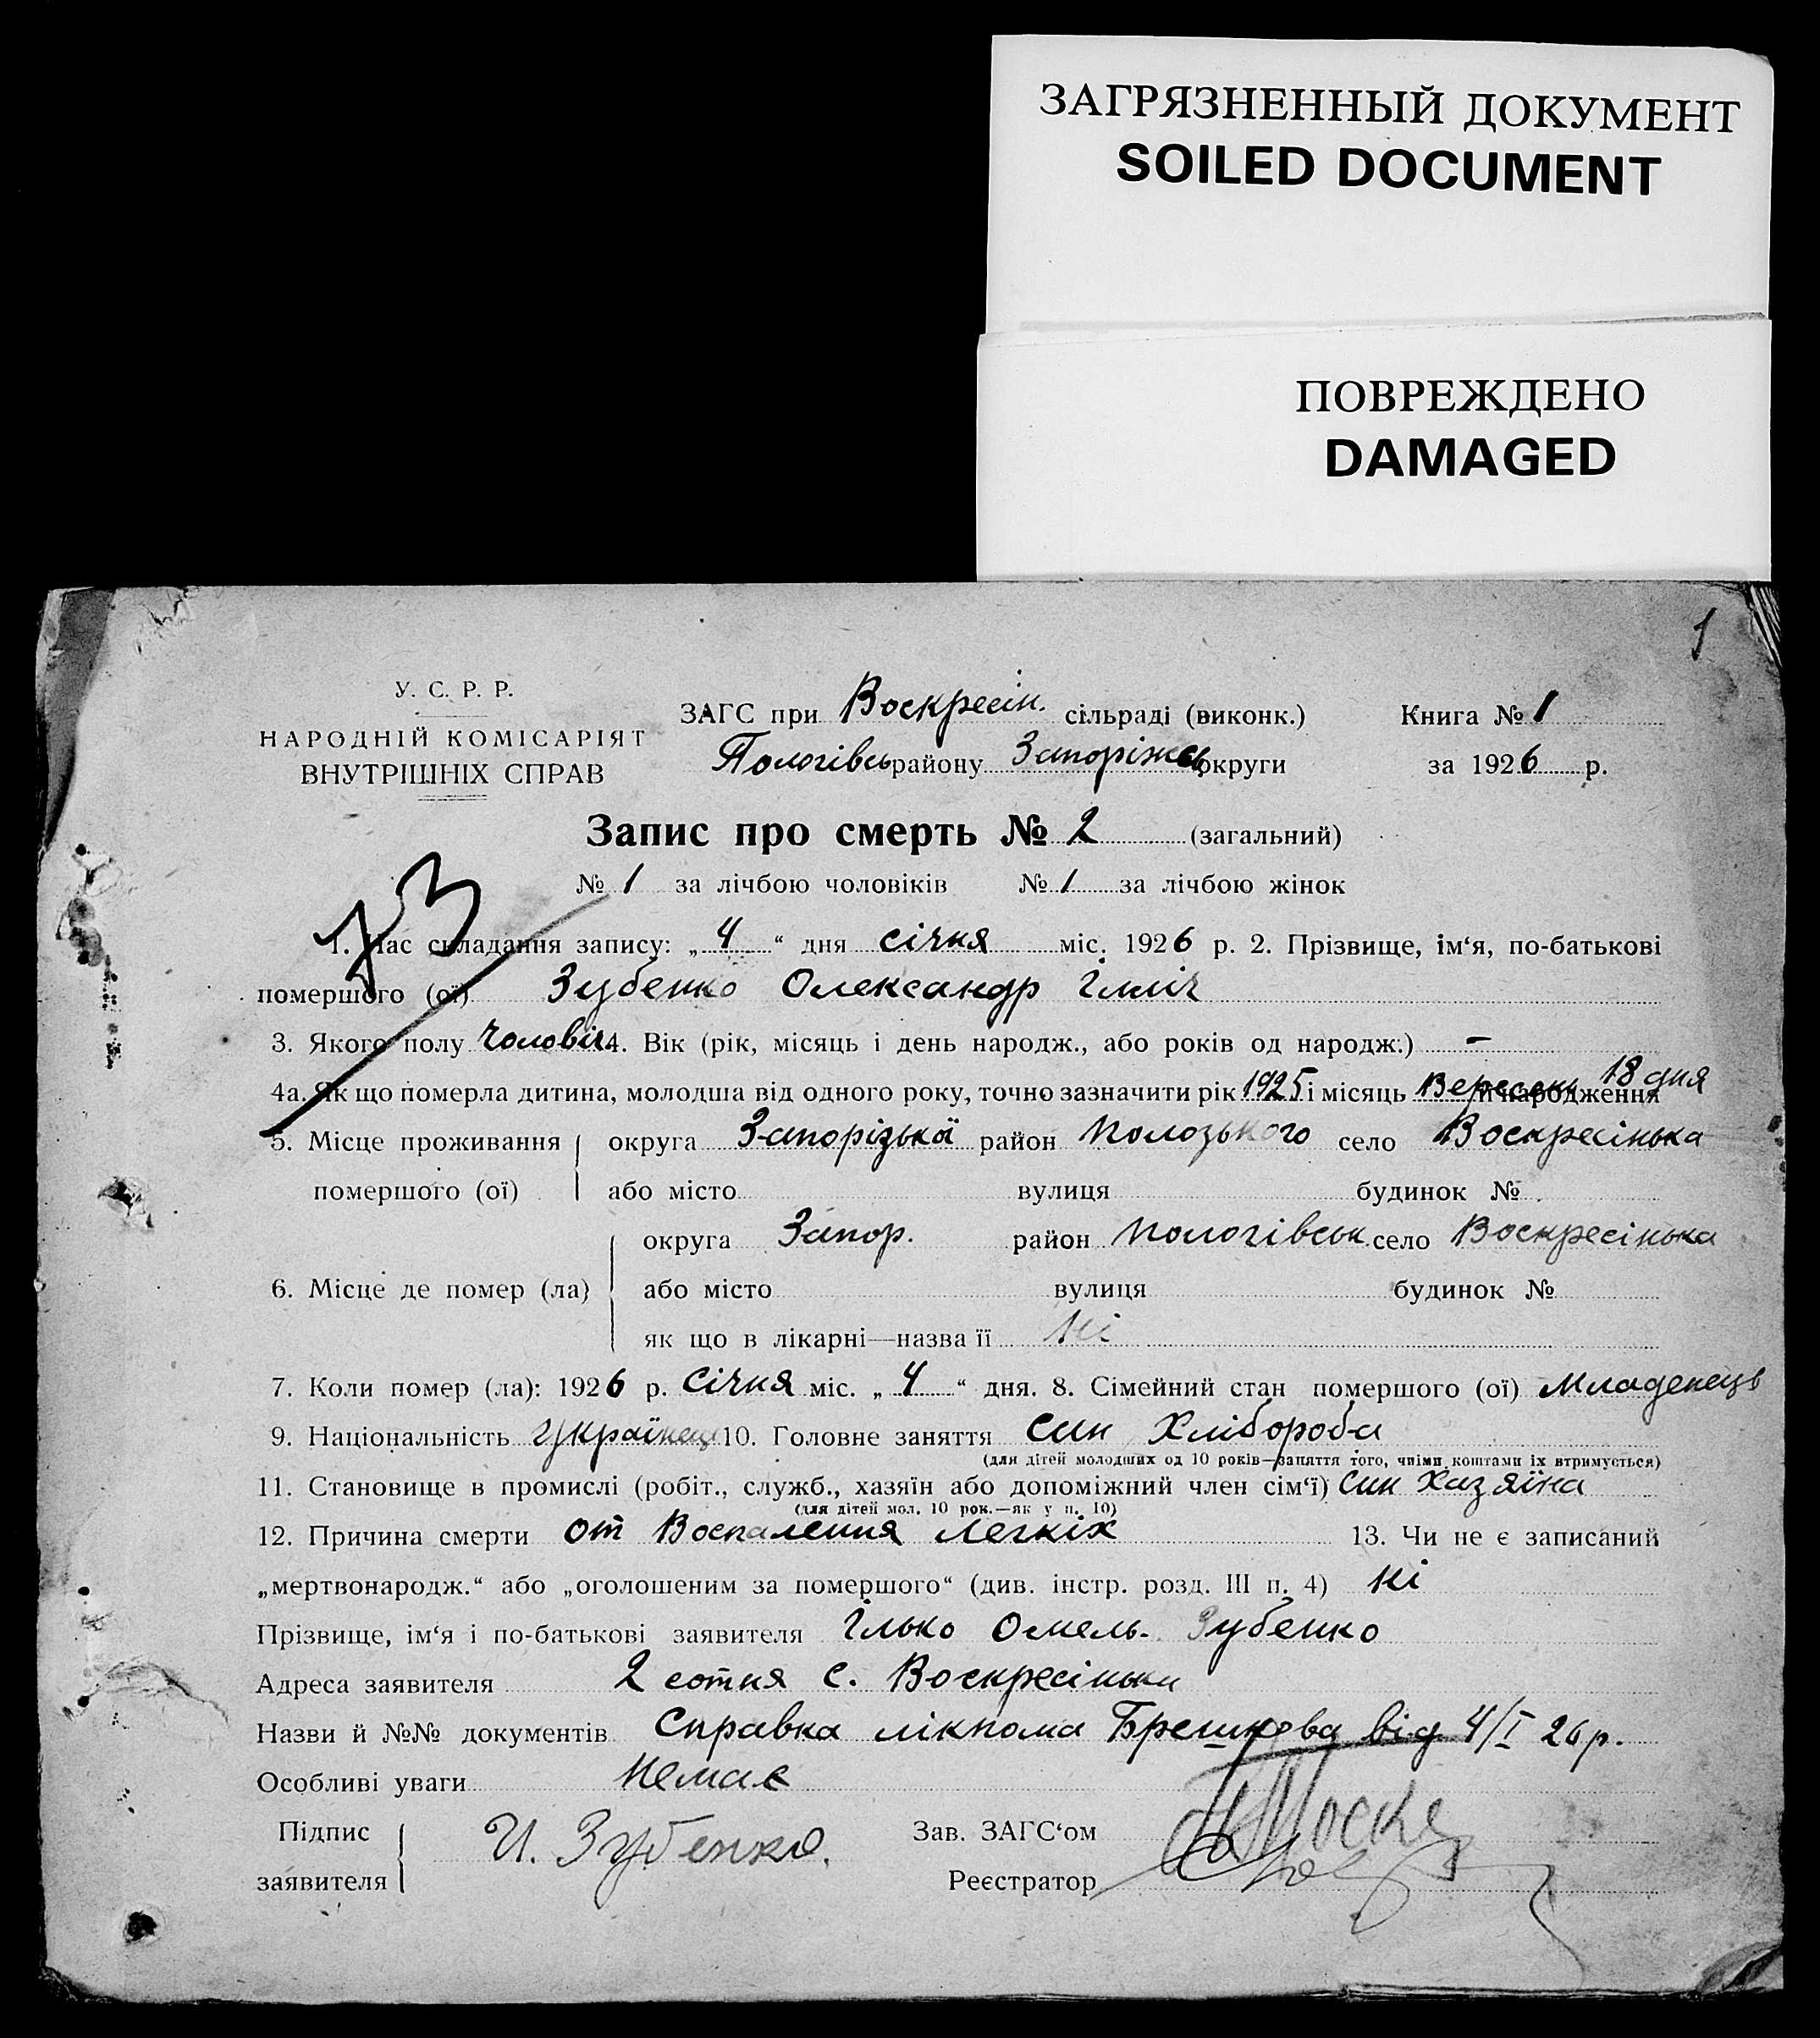 ЗАГРЯЗНЕННЫЙ ДОКУМЕНТ
SOILED DOCUMENT
ПОВРЕЖДЕНО
DAMAGED
1
У. С. Р. Р.
НАРОДНІЙ КОМІСАРІЯТ
ВНУТРІШНІХ СПРАВ
ЗАГС при Воскресін. сільраді (виконк.)
Пологівсь району Запоріжсь округи
Книга № 1
за 1926 р.
Запис про смерть № 2 (загальний)
№ 1 за лічбою чоловіків № 1 за лічбою жінок
1. Час складання запису: „ 4 “ дня січня міс. 1926 р. 2. Прізвище, ім‘я, по-батькові
помершого (ої) Зубенко Олександр Ілліч
3. Якого полу чоловіч 4. Вік (рік, місяць і день народж., або років од народж.) –
4а. Як що померла дитина, молодша від одного року, точно зазначити рік 1925 і місяць Вересень 18 дня народження
5. Місце проживання помершого (ої) округа Запорізької район Пологзького село Воскресінька
або місто вулиця будинок №
6. Місце де помер (ла) округа Запор. район Пологівськ. село Воскресінька
або місто вулиця будинок №
як що в лікарні—назва її Ні
7. Коли помер (ла): 1926 р. Січня міс. „ 4 “ дня. 8. Сімейний стан помершого (ої) Младенець
9. Національність Українець 10. Головне заняття син Хлібороба
(для дітей молодших од 10 років—заняття того, чиїми коштами їх втримується)
11. Становище в промислі (робіт., служб., хазяїн або допоміжний член сім‘ї) син Хазяїна
(для дітей мол. 10 рок.—як у п. 10)
12. Причина смерти от Воспаления Легкіх 13. Чи не є записаний
„мертвонародж.“ або „оголошеним за помершого“ (див. інстр. розд. III п. 4) Ні
Прізвище, ім‘я і по-батькові заявителя Ілько Омель. Зубенко
Адреса заявителя 2 сотня с. Воскресіньки
Назви й №№ документів Справка лікпома Брешкова від 4/I 26 р.
Особливі уваги Немає
Підпис заявителя И. Зубенко.
Зав. ЗАГС‘ом
Реєстратор